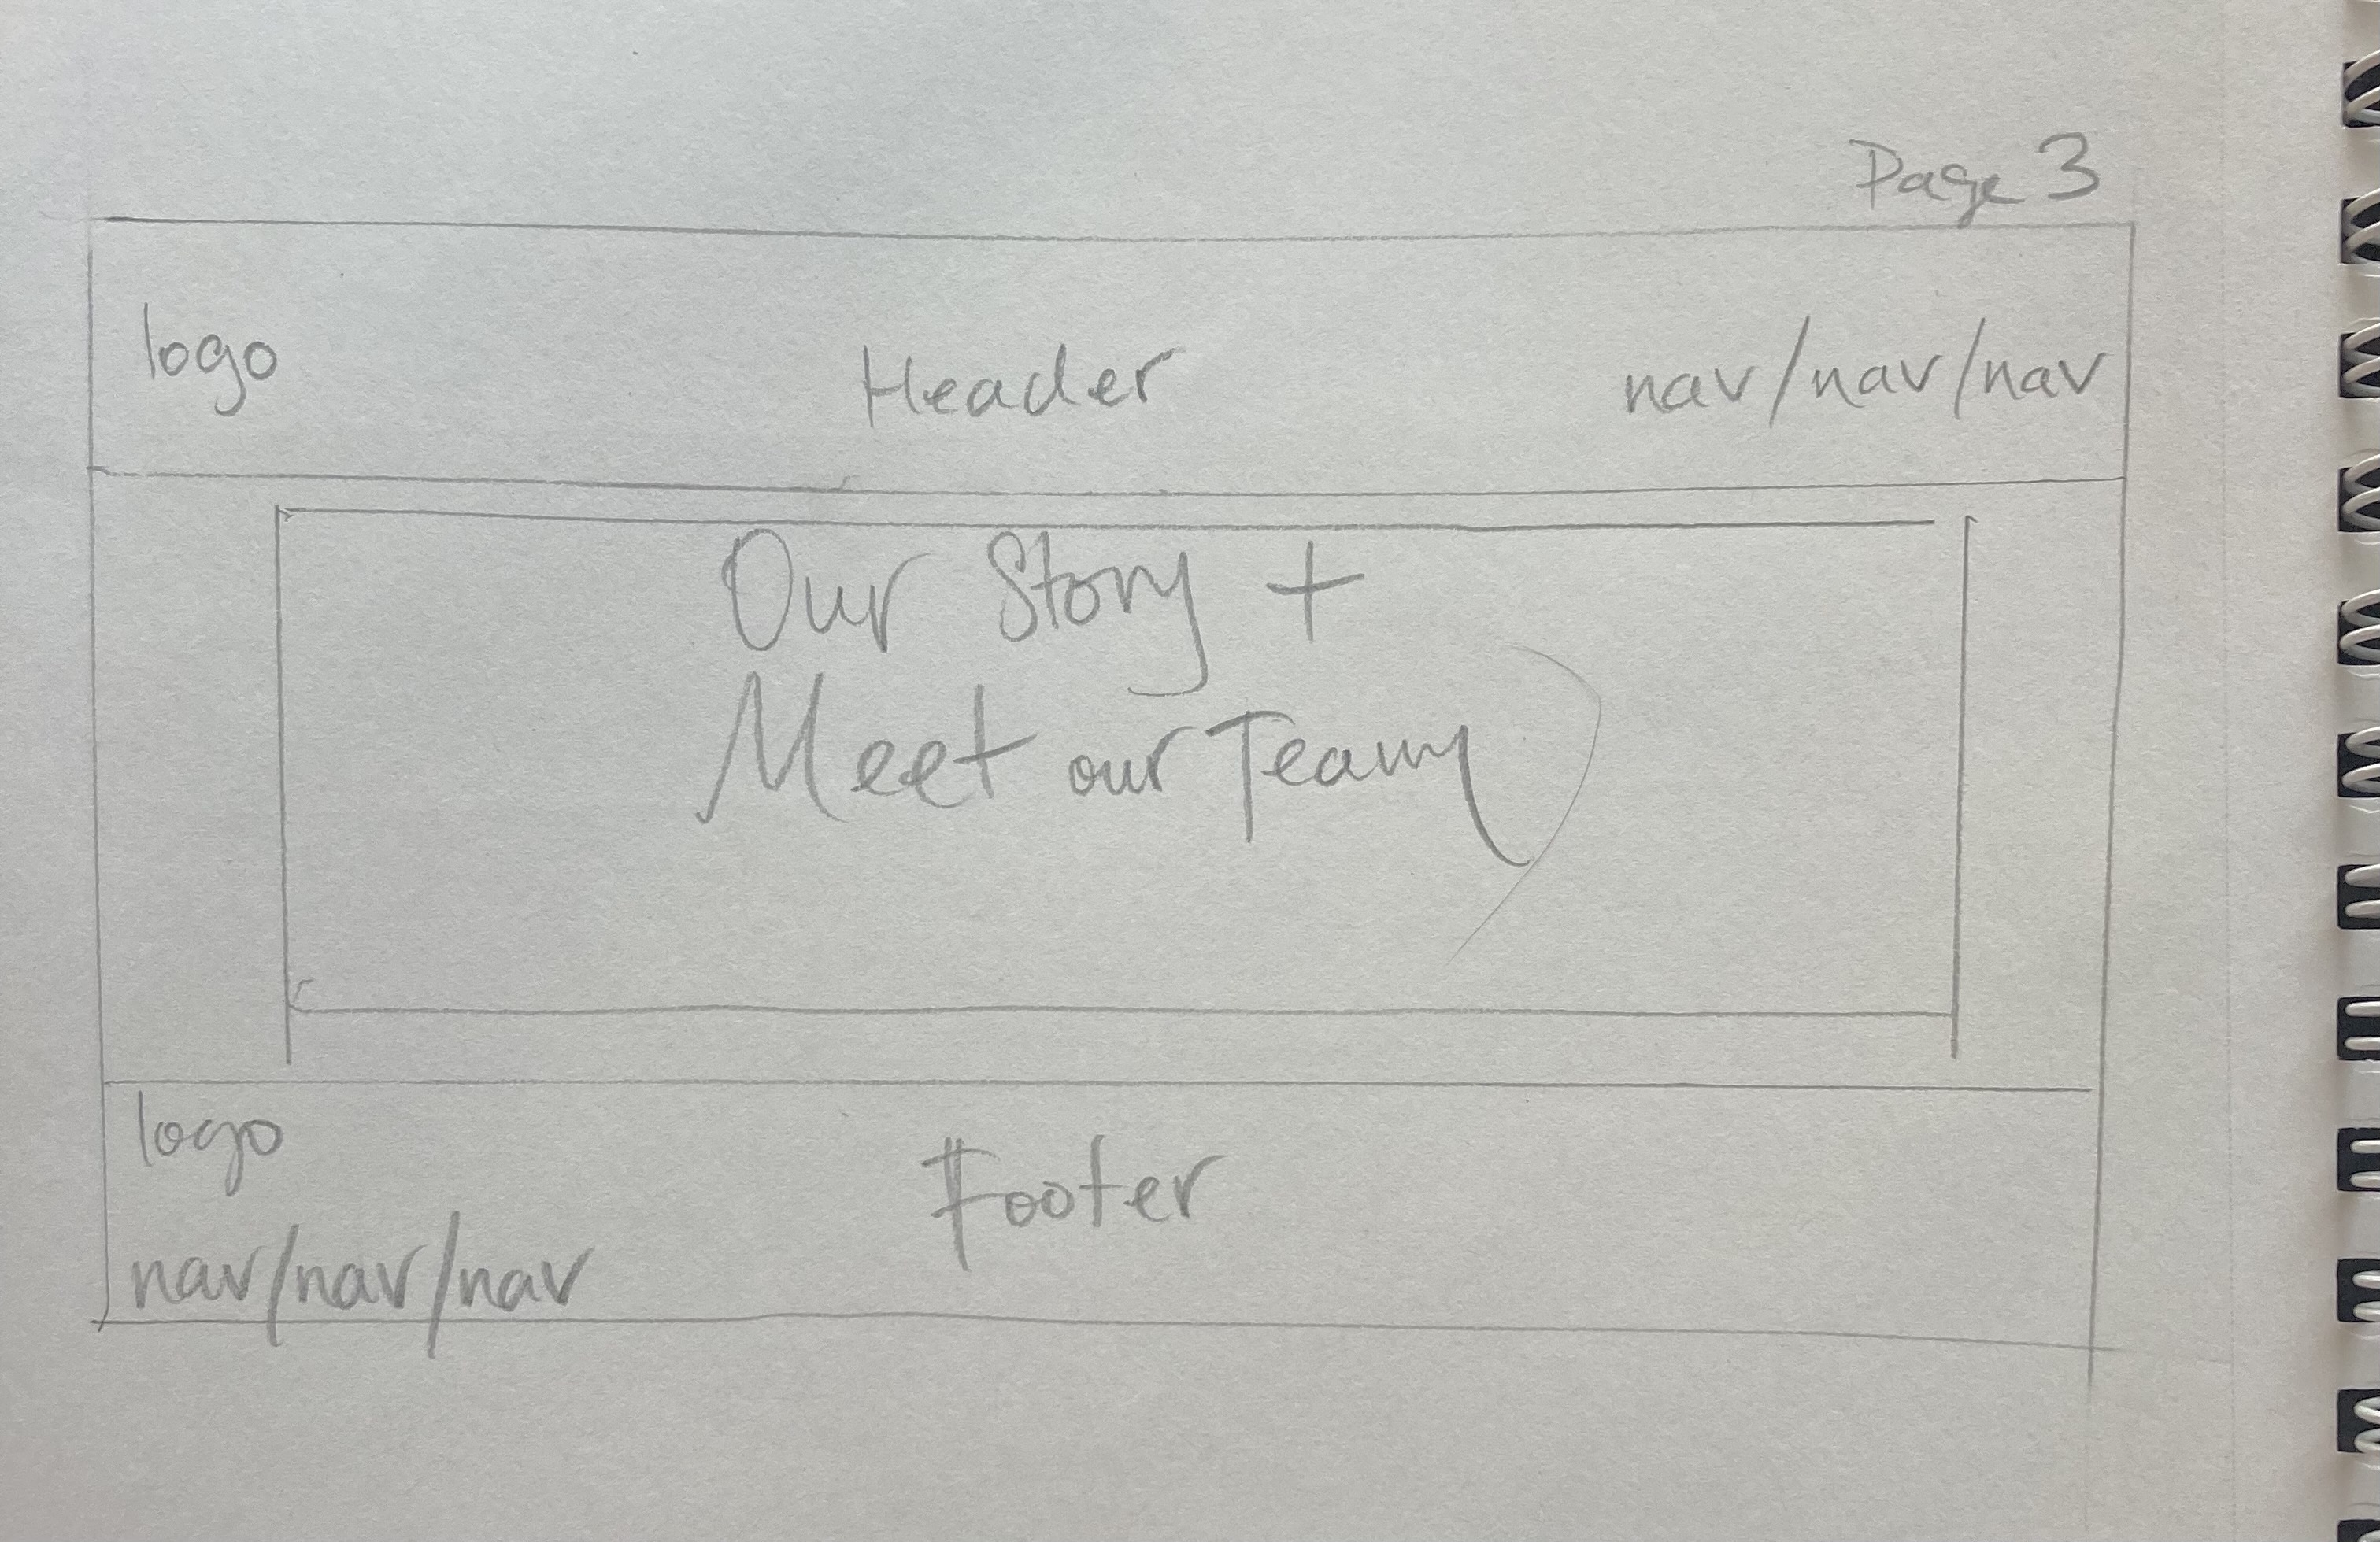 Page 3
logo Header nav/nav/nav
Our Story +
Meet our Team
logo
Footer
nav/nav/nav